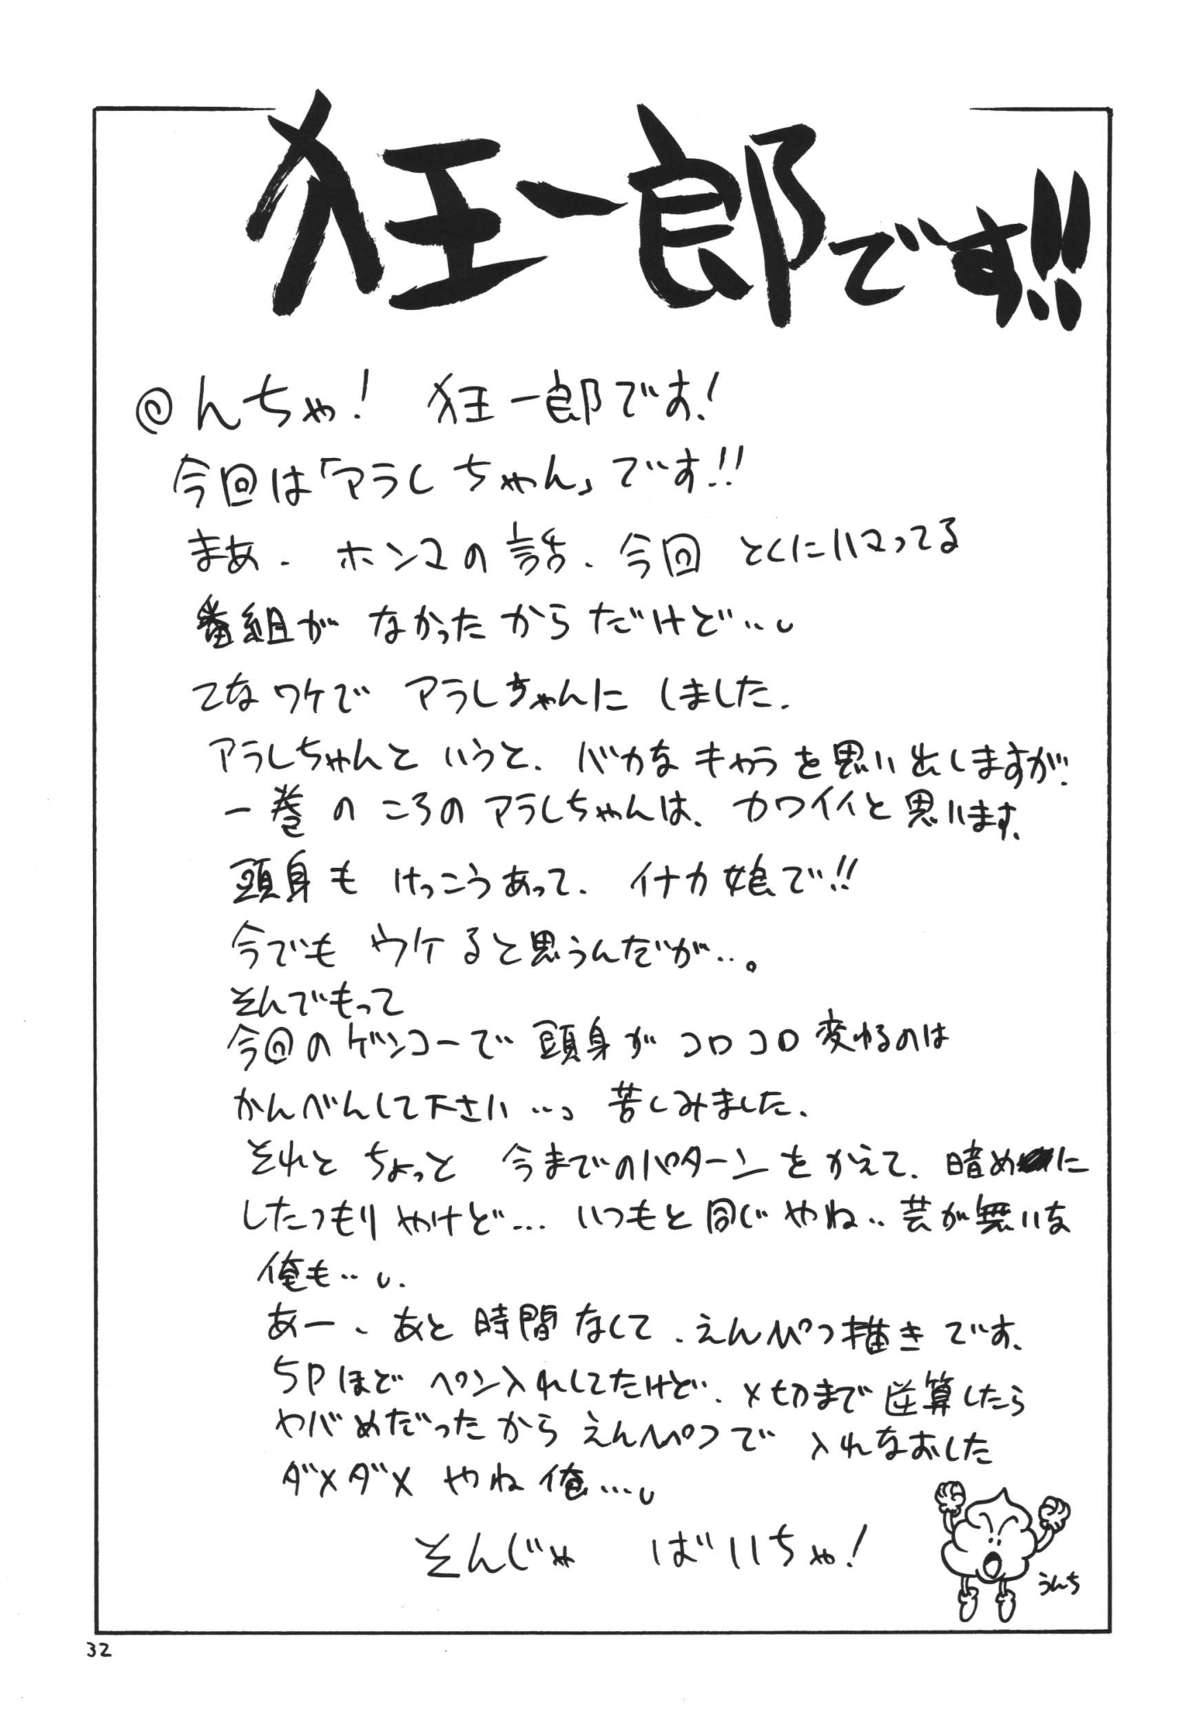 狂一郎です!!
@んちゃ! 狂一郎です!
今回は「アラレちゃん」です!!
まあ、ホンマの話、今回とくにハマってる
番組がなかったからだけど…。
てなワケでアラレちゃんにしました。
アラレちゃんというと、バカなキャラを思い出しますが、
一巻のころのアラレちゃんは、カワイイと思います。
頭身もけっこうあって、イナカ娘で!!
今でもウケると思うんだが…。
そんでもって
今回のゲンコーで頭身がコロコロ変わるのは
かんべんして下さい…。苦しみました。
それとちょっと今までのパターンをかえて、暗めに
したつもりやけど… いつもと同じやね… 芸が無いな
俺も…。
あー、あと時間なくて、えんぴつ描きです。
5Pほどペン入れしてたけど、〆切まで逆算したら
ヤバめだったからえんぴつで入れなおした
ダメダメやね俺…。
そんじゃ ばいちゃ!
うんち
32